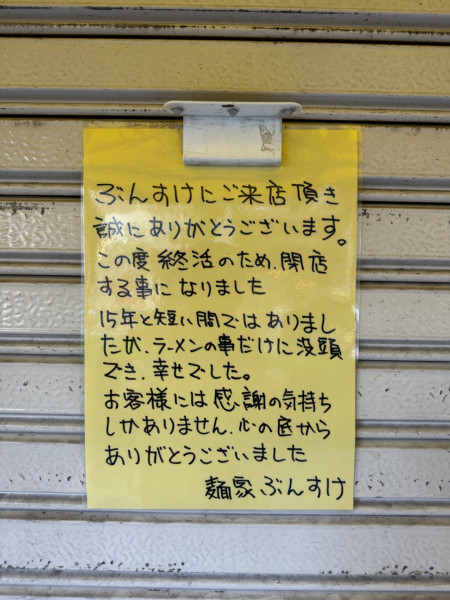 ぶんすけにご来店頂き
誠にありがとうございます。
この度 終活のため、閉店
する事に なりました
15年と短い間では ありまし
たが、ラーメンの事だけに没頭
でき、幸せでした。
お客様には 感謝の気持ち
しかありません、心の底から
ありがとうございました
麺家 ぶんすけ